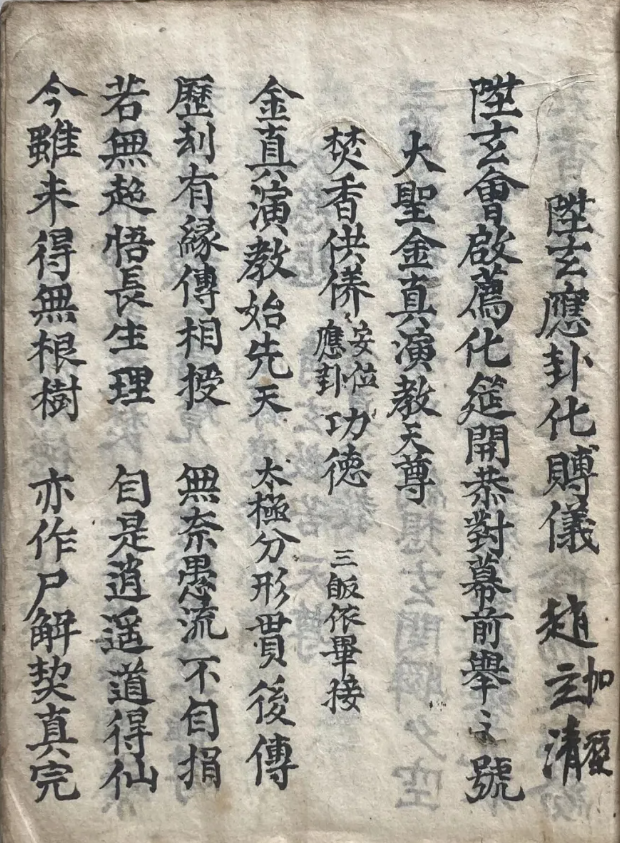 陞玄應卦化賻儀 趙玄清
陞玄會啟薦化筵開恭對幕前舉 號
大聖金真演教天尊
焚香供養 安位應卦 功德 三皈依畢接
金真演教始先天 太極分形貫後傳
歷刻有緣傳相授 無奈愚流不自捐
若無超悟長生理 自是逍遥道得仙
今雖未得無根樹 亦作尸解契真完